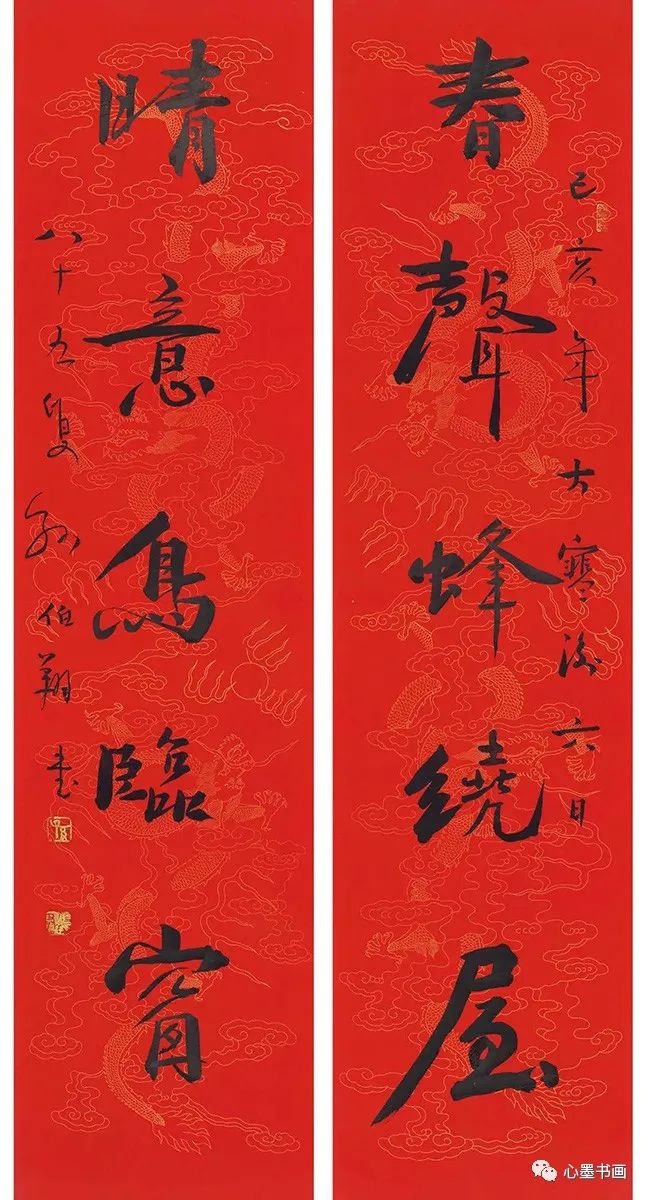 己亥年大寒後六日
春聲蜂繞屋
晴意鳥臨窗
八十五叟孫伯翔書
心墨书画